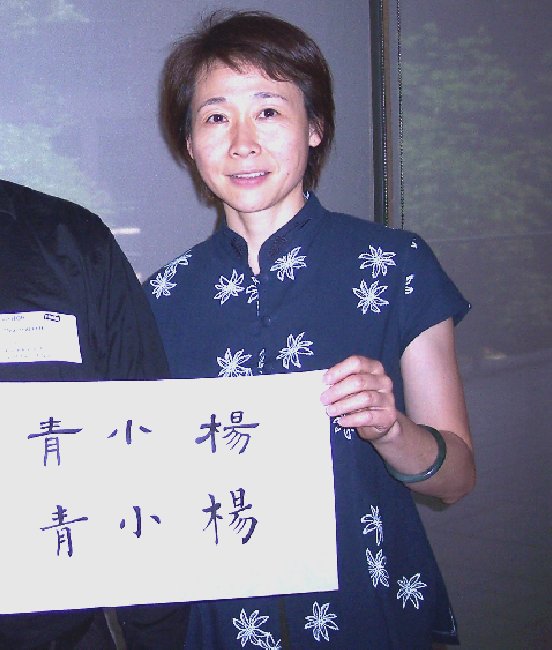 青小楊
青小楊